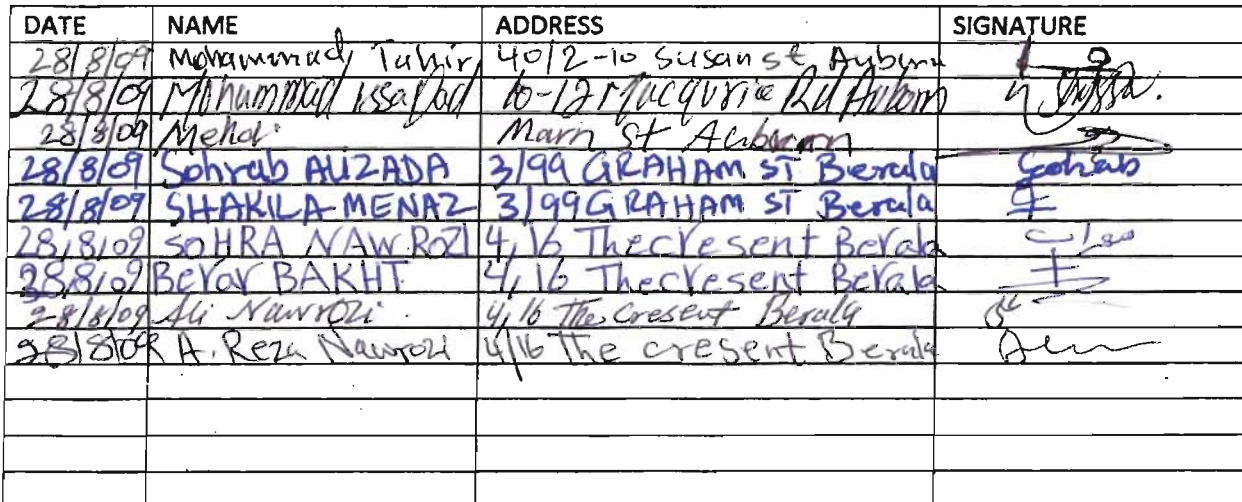 DATE NAME ADDRESS SIGNATURE
28/8/09 Mohammad Tahir 40/2-10 Susan st Auburn
28/8/09 Mohummad 10-12 Macqurie Rd Auborn
28/8/09 Mehdi st
28/8/09 Sohrab ALIZADA 3/99 GRAHAM ST Berala Sohrab
28/8/09 SHAKILA MENAZ 3/99 GRAHAM ST Berala
28/8/09 SOHRA NAWROZI 4,16 The cresent Berala
28/8/09 BAKHT 4,16 The cresent Berala
28/8/09 Ali Nawrozi 4,16 The cresent Berala
28/8/09 A. Reza Nawrozi 4/16 The cresent Berala